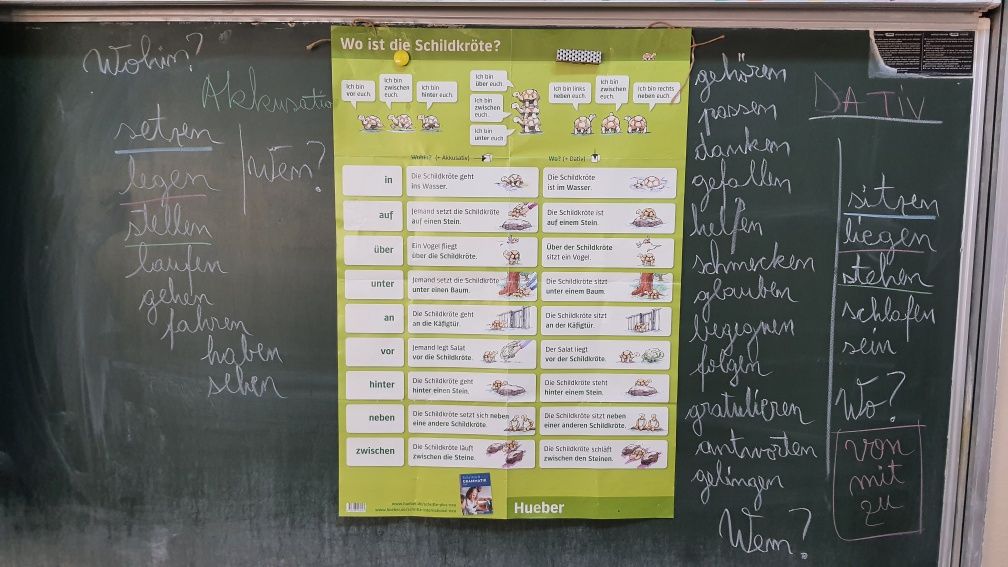 Wohin?
Akkusativ
setzen
legen
stellen
laufen
gehen
fahren
haben
sehen
Wen?
Wo ist die Schildkröte?
Ich bin
vor euch.
Ich bin
zwischen
euch.
Ich bin
hinter euch.
Ich bin
über euch.
Ich bin
zwischen
euch.
Ich bin
unter euch
Ich bin links
neben euch.
Ich bin
zwischen
euch.
Ich bin rechts
neben euch.
Wohin? (+ Akkusativ)
Wo? (+ Dativ)
in
Die Schildkröte geht
ins Wasser.
Die Schildkröte
ist im Wasser.
auf
Jemand setzt die Schildkröte
auf einen Stein.
Die Schildkröte ist
auf einem Stein.
über
Ein Vogel fliegt
über die Schildkröte.
Über der Schildkröte
sitzt ein Vogel.
unter
Jemand setzt die Schildkröte
unter einen Baum.
Die Schildkröte sitzt
unter einem Baum.
an
Die Schildkröte geht
an die Käfigtür.
Die Schildkröte sitzt
an der Käfigtür.
vor
Jemand legt Salat
vor die Schildkröte.
Der Salat liegt
vor der Schildkröte.
hinter
Die Schildkröte geht
hinter einen Stein.
Die Schildkröte steht
hinter einem Stein.
neben
Die Schildkröte setzt sich neben
eine andere Schildkröte.
Die Schildkröte sitzt neben
einer anderen Schildkröte.
zwischen
Die Schildkröte läuft
zwischen die Steine.
Die Schildkröte schläft
zwischen den Steinen.
GRAMMATIK
Hueber
gehören
passen
danken
gefallen
helfen
schmecken
glauben
begegnen
folgen
gratulieren
antworten
gelingen
Wem?
DATIV
sitzen
liegen
stehen
schlafen
sein
Wo?
von
mit
zu